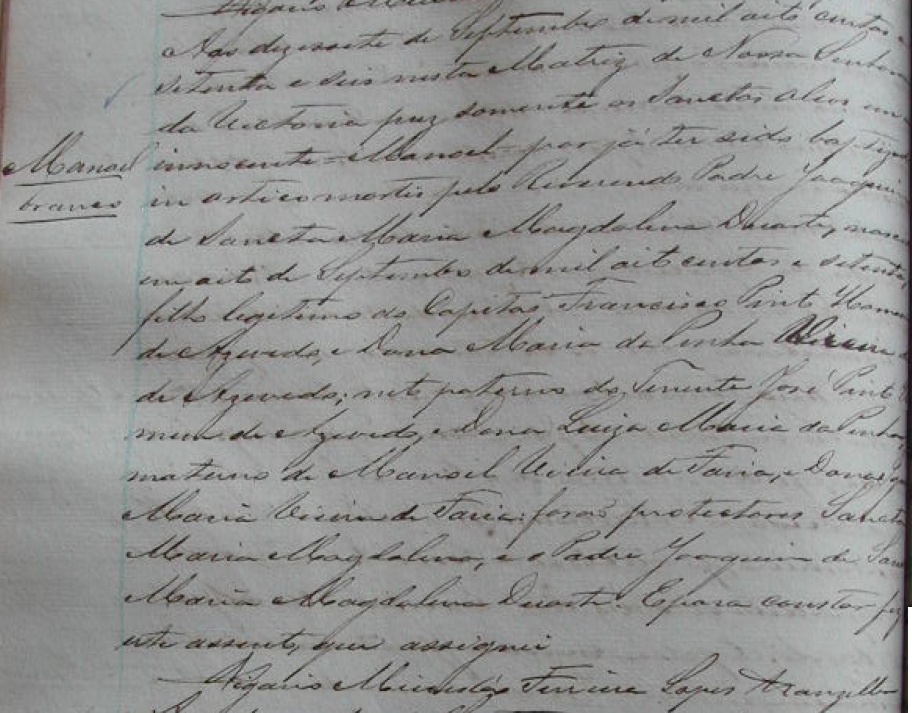 Vigario
Aos dezessete de Septembro de mil oito centos e
setenta e seis nesta Matriz de Nossa Senhora
da Victoria puz somente os Sanctos oleos em
Manoel
branco
innocente = Manoel = por já ter sido baptizado
in articomortis pelo Reverendo Padre Joaquim
de Sancta Maria Magdalena Duarte, nasc
em oito de Septembro de mil oito centos e setenta,
filho legitimo do Capitão Francisco Pinto Homem
de Azevedo, e Dona Maria da Penha Vieira
de Azevedo; neto paterno do Tenente José Pinto
mem de Azevedo, e Dona Luiza Maria da Penha,
materno de Manoel Vieira de Faria, e Dona
Maria Vieira de Faria: forão protectores Sancta
Maria Magdalena, e o Padre Joaquim de San
Maria Magdalena Duarte. E para constar fiz
este assento, que assignei
Vigario Ferreira Lopes